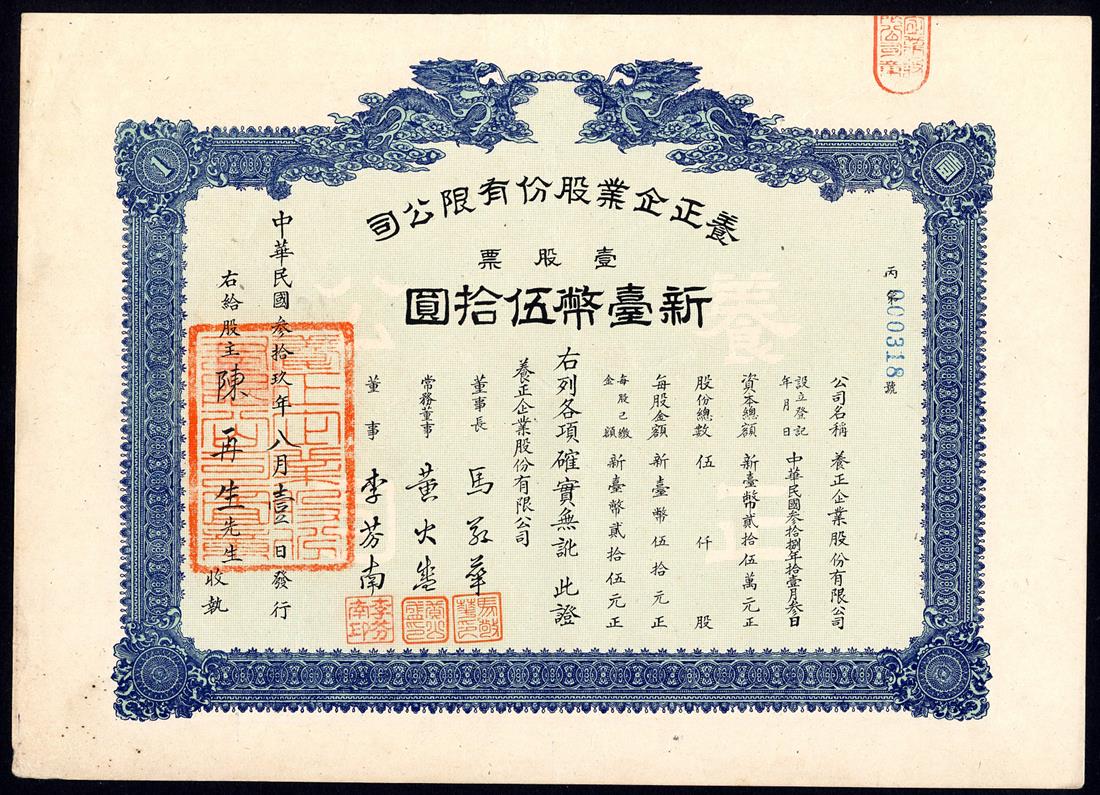 養正企業股份有限公司
壹股票
新臺幣伍拾圓
丙第000318號
公司名稱 養正企業股份有限公司
設立登記年月日 中華民國叁拾捌年拾壹月叁日
資本總額 新臺幣貳拾伍萬元正
股份總數 伍仟股
每股金額 新臺幣伍拾元正
每股已繳金額 新臺幣貳拾伍元正
右列各項確實無訛此證
養正企業股份有限公司
董事長 馬
常務董事 黃火
董事 李芳南
中華民國叁拾玖年八月壹日發行
右給股主陳再生先生收執
1
壹